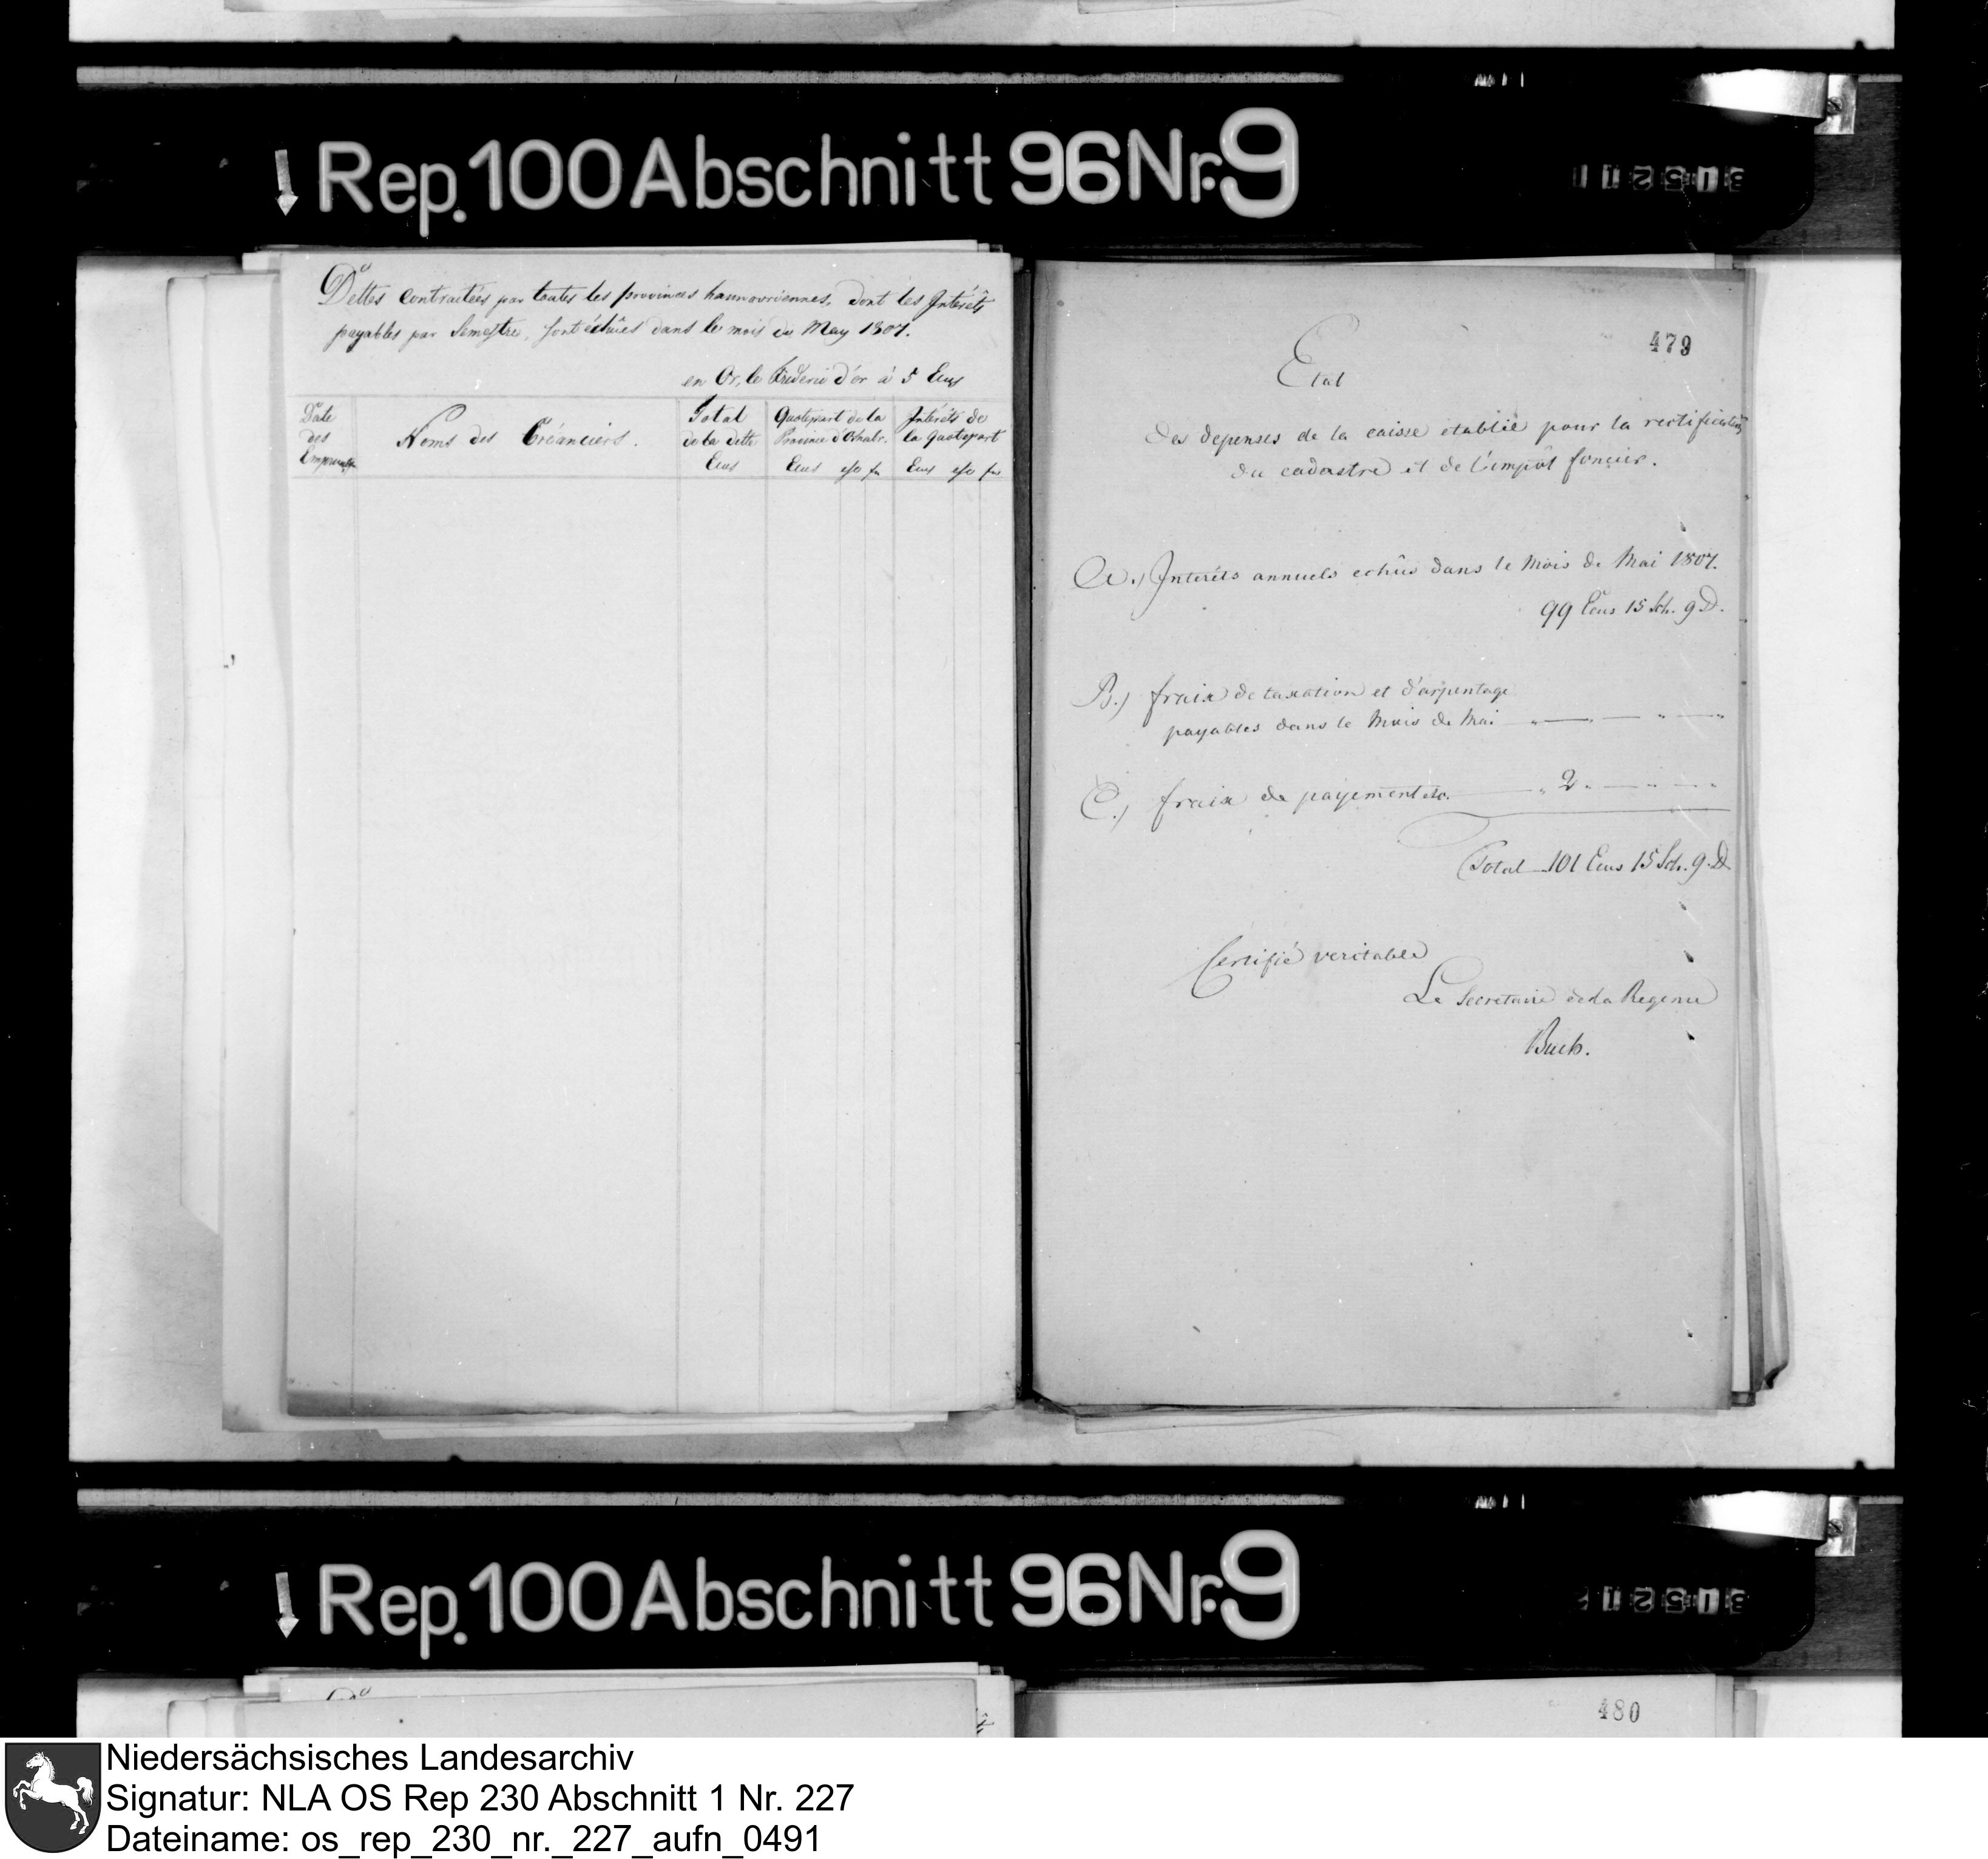 Rep. 100 Abschnitt 96 Nr. 9
Dettes contractées par toutes les provinces hannovriennes, dont les Intérêts
payables par Semestre, sont échûes dans le mois de May 1807.
en Or, le Frideric d'or à 5 Ecus
Date
des
Noms des Créanciers.
Total
de la dette
Ecus
Quotepart de la
Province d'Osnabr.
Ecus
Intérêts de
la Quotepart
Ecus
479
Etat
des depenses de la caisse établie pour la rectification
du cadastre et de l'impôt foncier.
A.) Interêts annuels echûs dans le Mois de Mai 1807.
99 Ecus 15 Sch. 9 D.
B.) fraix de taxation et d'arpentage
payables dans le Mois de Mai
C.) fraix de payement etc. 2
Total 101 Ecus 15 Sch. 9 D
Certifié veritable
Le Secretaire de la Regence
Buch.
Rep. 100 Abschnitt 96 Nr. 9
480
Niedersächsisches Landesarchiv
Signatur: NLA OS Rep 230 Abschnitt 1 Nr. 227
Dateiname: os_rep_230_nr._227_aufn_0491